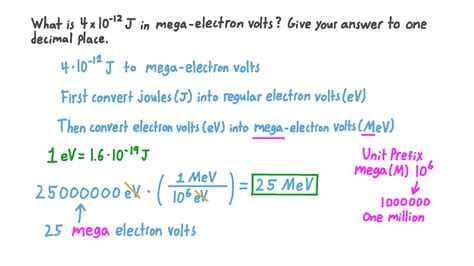 What is 4 x 10⁻¹² J in mega-electron volts? Give your answer to one
decimal place.
4·10⁻¹² J to mega-electron volts
First convert Joules (J) into regular electron volts (eV)
Then convert electron volts (eV) into mega-electron volts (MeV)
1 eV = 1.6·10⁻¹⁹ J
Unit Prefix
mega (M) 10⁶
1000000
One million
25000000 eV · (1 MeV / 10⁶ eV) = 25 MeV
25 mega electron volts